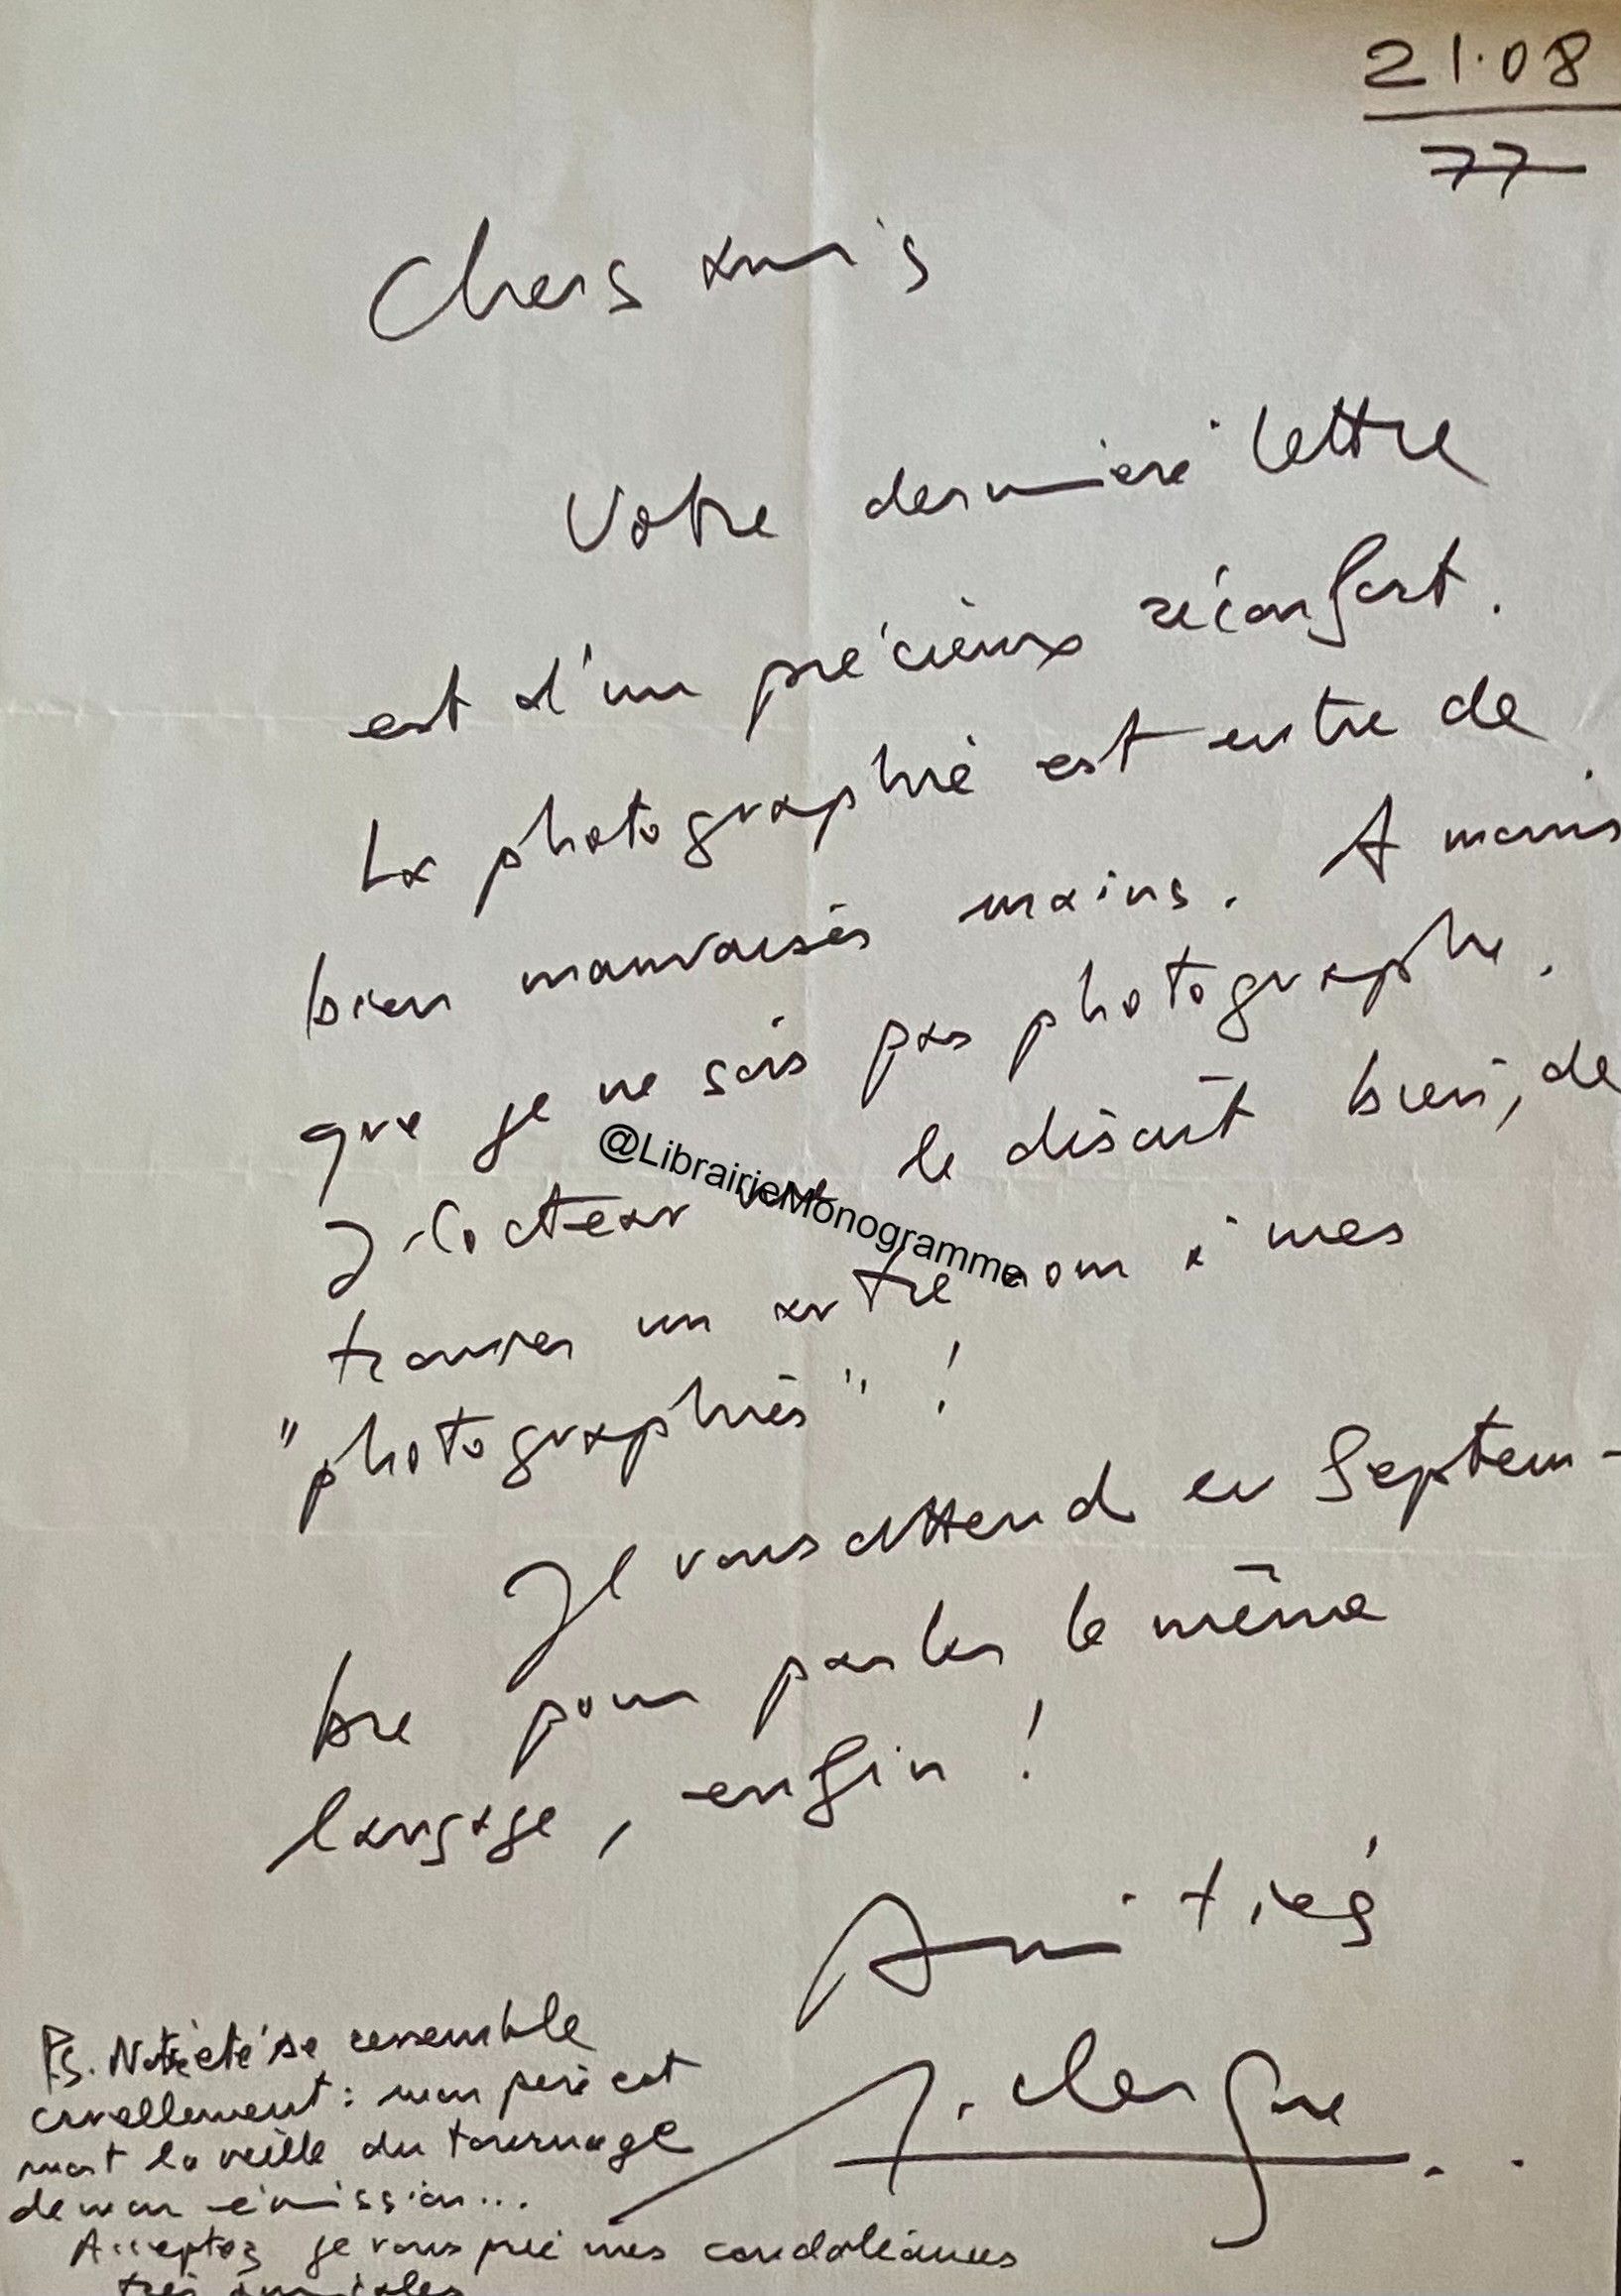 21.08
77
Chers amis
Votre dernière lettre
est d'un précieux réconfort.
La photographie est entre de
bien mauvaises mains. A moins
que je ne sois pas photographe.
J. Cocteau le disait bien, de
@LibrairieMonogramme
trouver un autre nom à mes
"photographies" !
Je vous attend en Septem-
bre pour parler le même
langage, enfin !
Amitiés
PS. Notre été se ressemble
cruellement : mon père est
mort la veille du tournage
de mon émission...
Acceptez je vous prie mes condoléances
très amicales